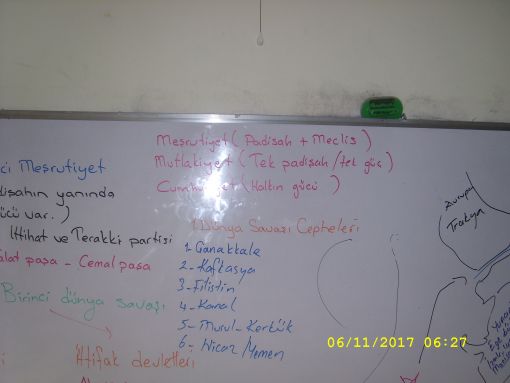 Meşrutiyet (Padişah + Meclis)
Mutlakiyet (Tek padişah/tek güç)
Cumhuriyet (Halkın gücü)
ci Meşrutiyet
dişahın yanında
ücü var.)
İttihat ve Terakki partisi
alat paşa - Cemal paşa
Birinci dünya savaşı
İtifak devletleri
1.Dünya Savaşı Cepheleri
1- Çanakkale
2- Kafkasya
3- Filistin
4- Kanal
5- Musul - Kerkük
6- Hicaz/Yemen
Avrupa
Trakya
06/11/2017 06:27